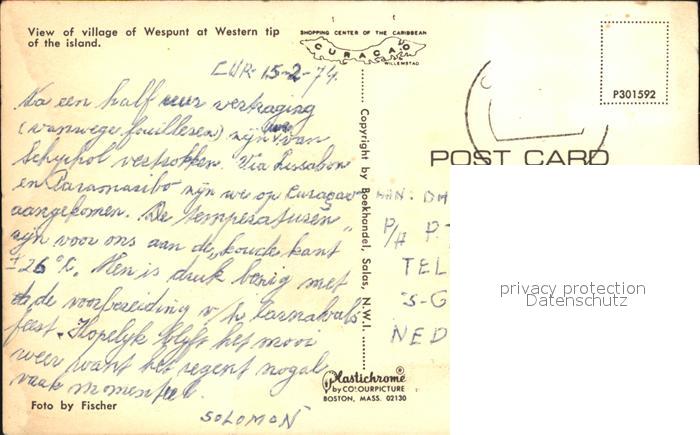 View of village of Wespunt at Western tip
of the island.
SHOPPING CENTER OF THE CARIBBEAN
CURAÇAO
WILLEMSTAD
P301592
POST CARD
CUR. 15-2-74.
Na een half uur vertraging
(vanwege fouilleren) zijn we van
Schiphol vertrokken. Via Lissabon
en Paramaribo zijn we op Curaçao
aangekomen. De temperaturen
zijn voor ons aan de „koude kant"
± 26° C. Men is druk bezig met
de voorbereiding v/h Carnavals
feest. Hopelijk blijft het mooi
weer want het regent nogal
vaak momenteel.
SOLOMON
Foto by Fischer
Copyright by Boekhandel, Salas, N.W.I.
Plastichrome®
by COLOURPICTURE
BOSTON, MASS. 02130
AAN: DH
P/A P.T
TEL
'S-G
NED
privacy protection
Datenschutz